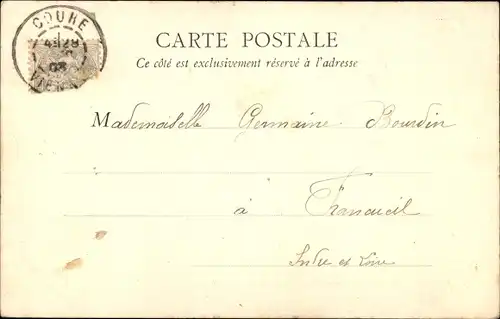 COUHÉ
VIENNE
CARTE POSTALE
Ce côté est exclusivement réservé à l'adresse
Mademoiselle Germaine Bourdin
à Francueil
Indre et Loire